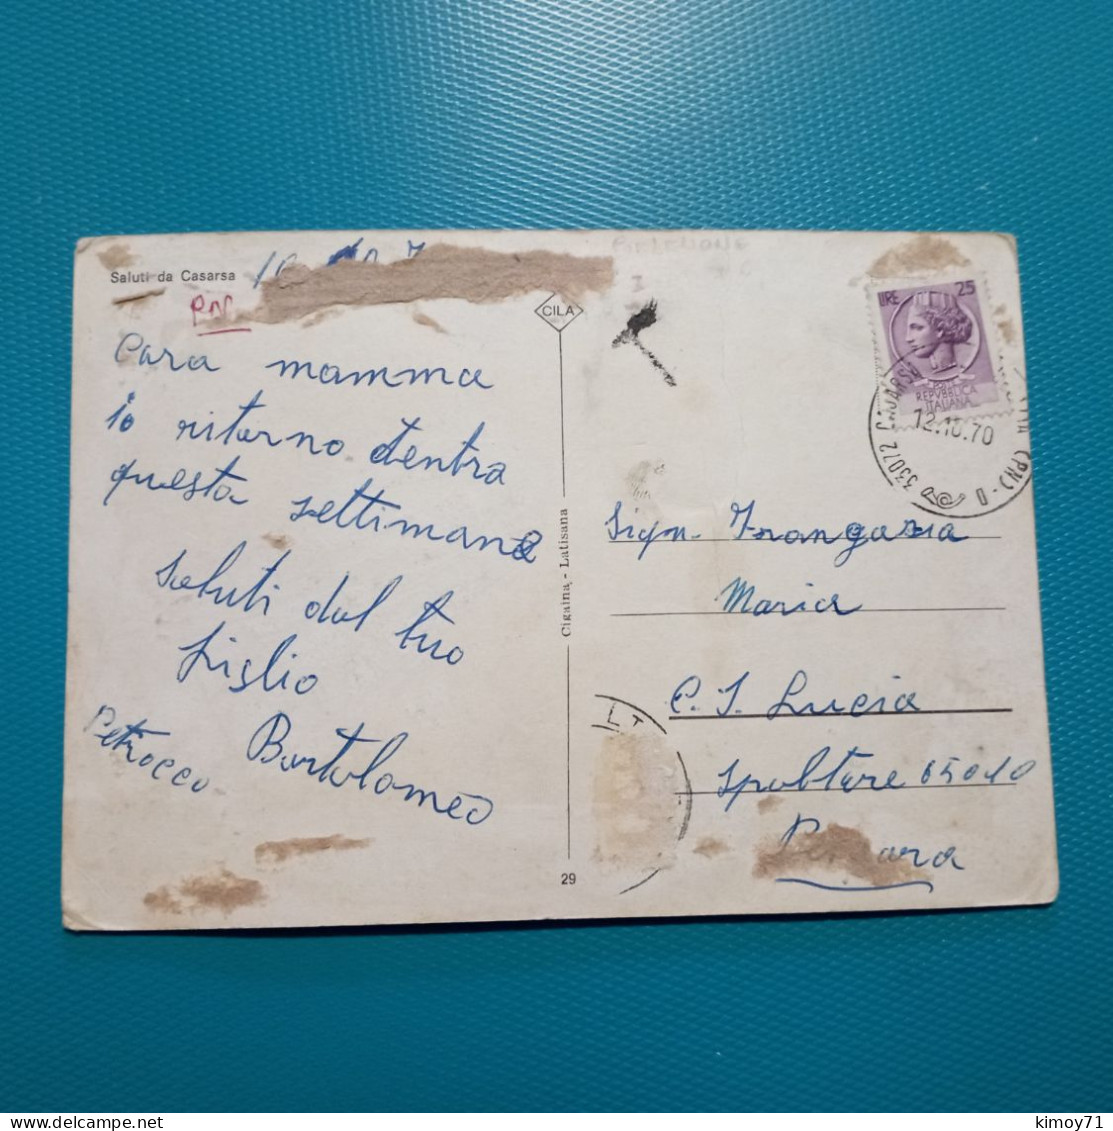 Saluti da Casarsa
PN
Cara mamma
io ritorno dentra
questa settimana
saluti dal tuo
figlio
Petrocco Bartolomeo
CILA
Cigaina - Latisana
29
LIRE 25
REPVBBLICA
ITALIANA
33072 CASARSA
(PN)
12.10.70
Sign.
Maria
C. S. Lucia
Spoltore 65010
Pescara
kimoy71